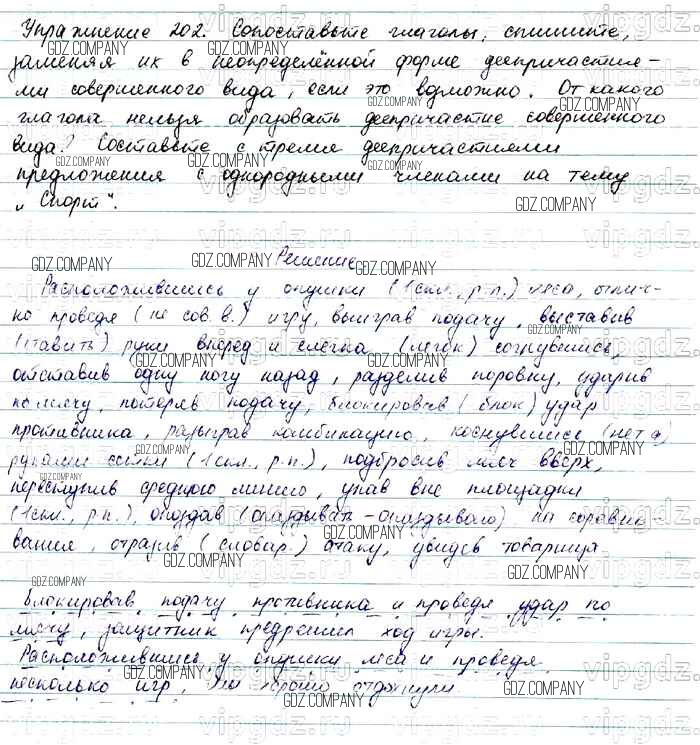 Упражнение 202. Сопоставьте глаголы, спишите,
заменяя их в неопределённой форме деепричастия-
ми совершенного вида, если это возможно. От какого
глагола нельзя образовать деепричастие совершенного
вида? Составьте с тремя деепричастиями
предложения с однородными членами на тему
„Спорт".
Решение
Расположившись у опушки (1 скл., р.п.) леса, отлич-
но проведя (не сов. в.) игру, выиграв подачу, выставив
(ставить) руки вперед и слегка (легок) согнувшись,
отставив одну ногу назад, разделив поровну, ударив
по мячу, потеряв подачу, блокировав (блок) удар
противника, разыграв комбинацию, коснувшись (нет а)
руками сетки (1 скл., р.п.), подбросив мяч вверх,
переступив среднюю линию, упав вне площадки
(1 скл., р.п.), опоздав (опаздывать - опаздываю) на соревно-
вания, отразив (словар.) атаку, увидев товарища.
Блокировав подачу противника и проведя удар по
мячу, защитник предрешил ход игры.
Расположившись у опушки леса и проведя
несколько игр, хорошо отдохнули.
GDZ.COMPANY
vipgdz.ru